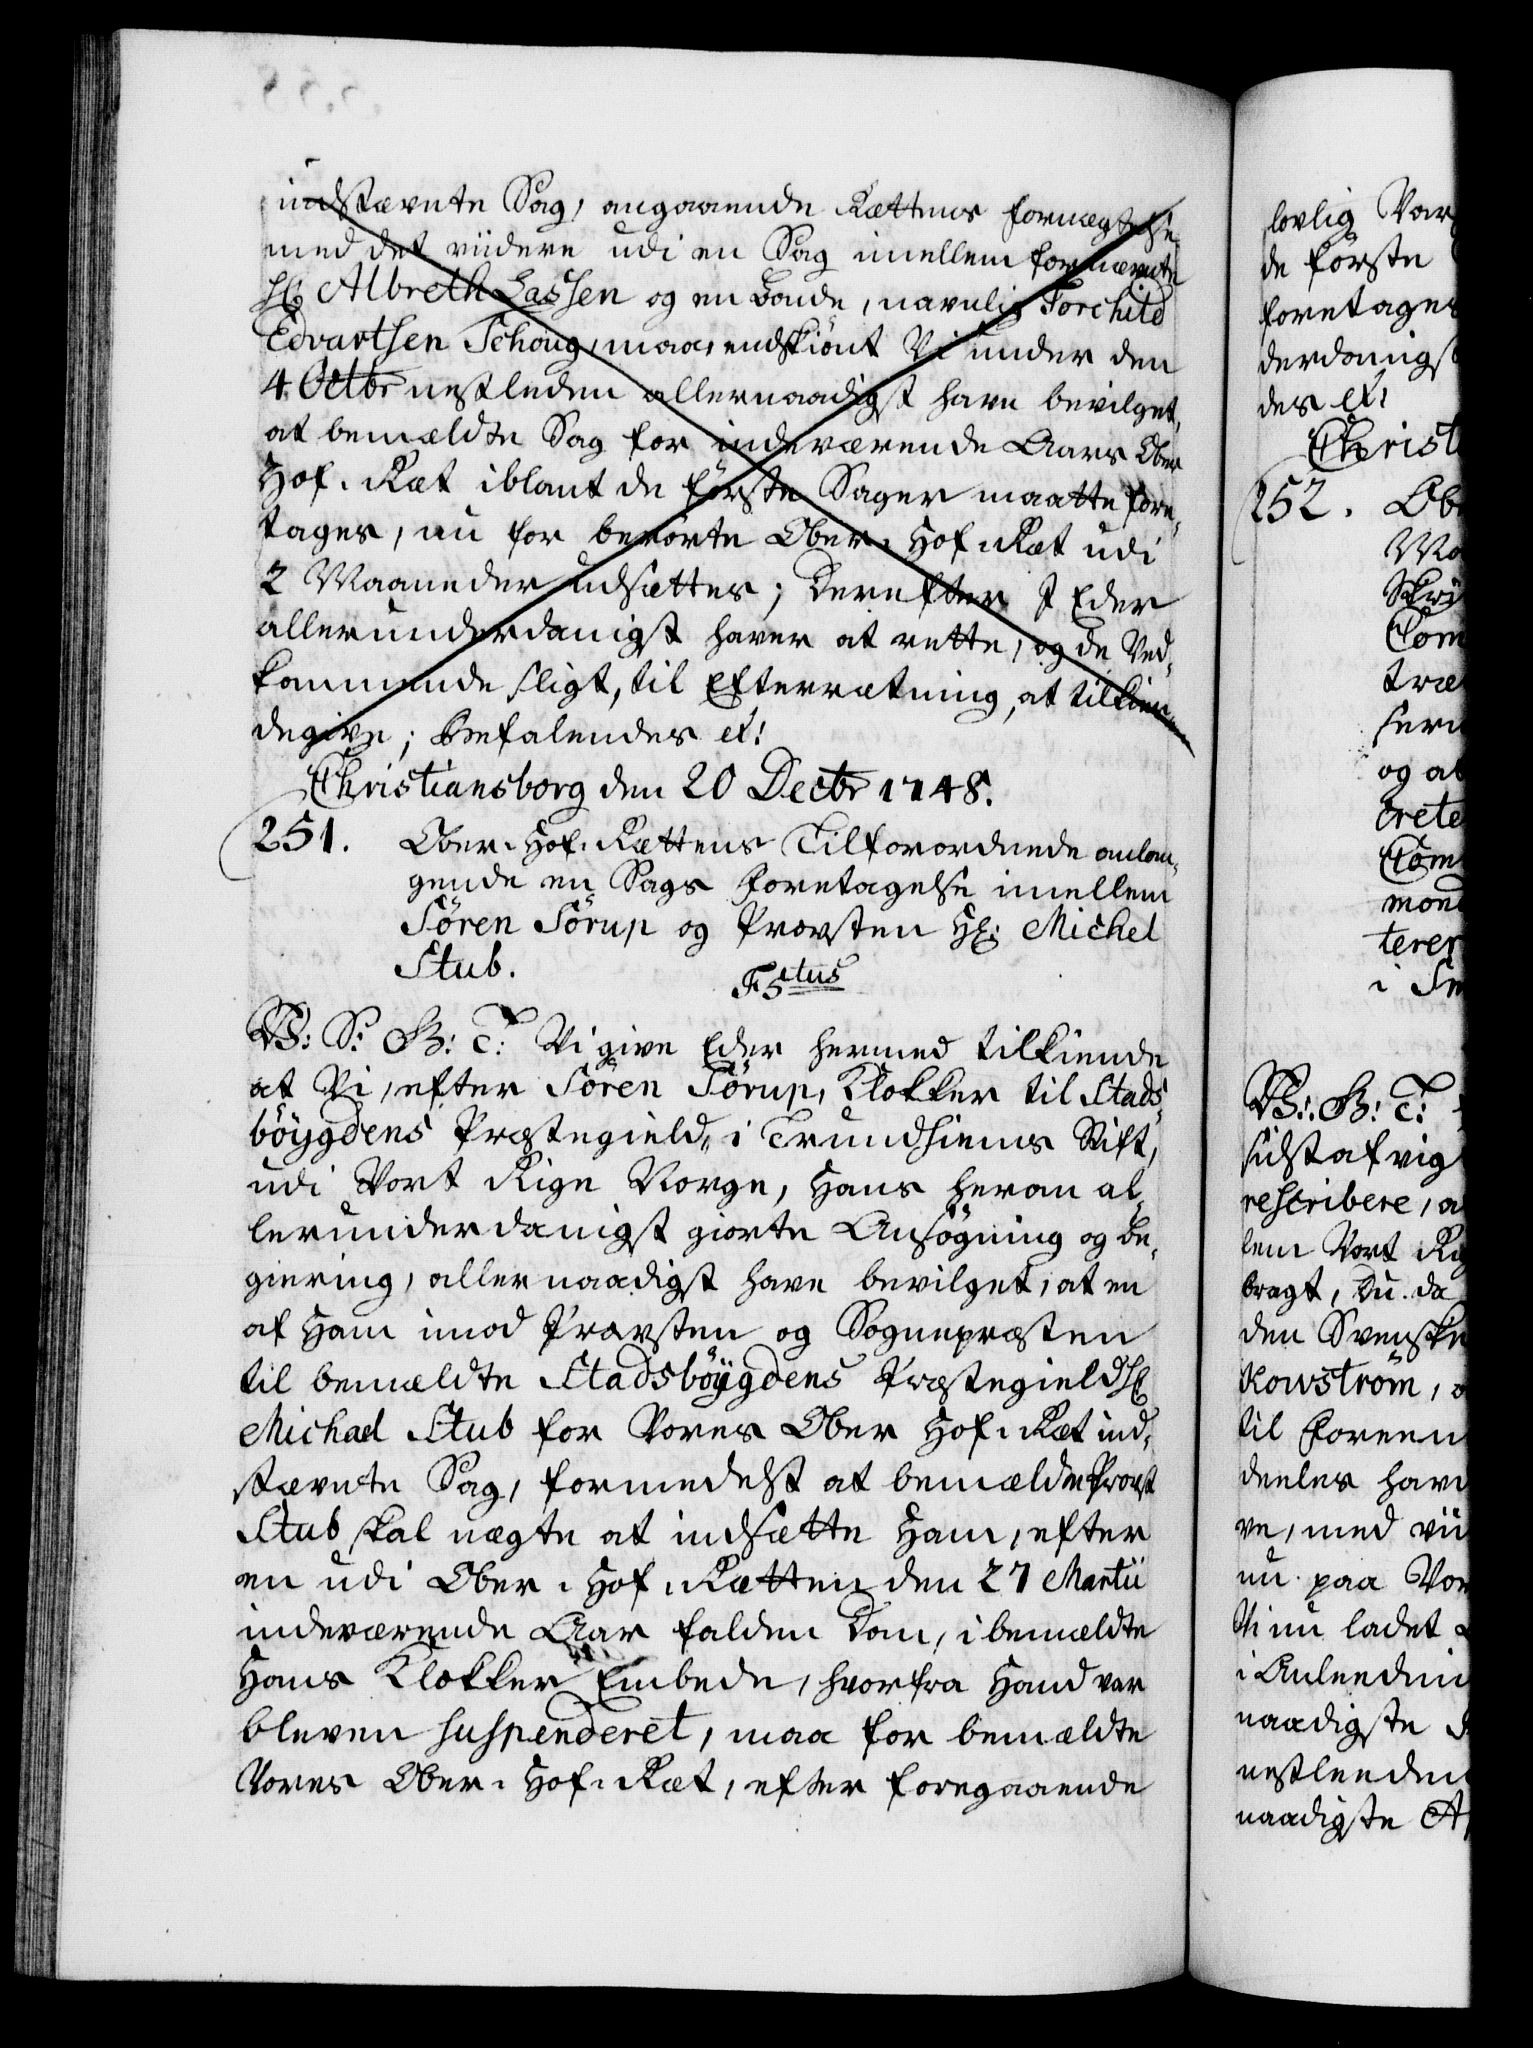 indstævnte Sag, angaaende Rættens fornægtelse
med det viidere udi en Sag imellem fornævnte
Hr Albreth Lassen og en Bonde, navnlig Torchild
Edvartsen Schoug, maa, endskiönt Vi under den
4 Octbr nestleden allernaadigst have bevilget,
at bemældte Sag for indeværende Aars Ober
Hof-Ræt iblant de förste Sager maatte fore-
tages, nu for berörte Ober-Hof-Ræt udi
2 Maaneder udsættes; Derefter I Eder
allerunderdanigst haver at rette, og de Ved-
kommende sligt, til Efterrætning, at tilkien-
degive; Befalendes etc!
Christiansborg den 20 Decbr 1748.
251. Ober-Hof-Rættens Tilforordnede anlan-
gende en Sags Foretagelse imellem
Sören Sörup og Provsten Hr: Michel
Stub.
F5tus
V: S: G: T: Vi give Eder hermed tilkiende
at Vi, efter Sören Sörup, Klokker til Stads-
böygdens Præstegield, i Trundhiems Stift,
udi Vort Rige Norge, Hans herom al-
lerunderdanigst giorte Ansögning og Be-
giering, allernaadigst have bevilget, at en
af Ham imod Provsten og Sognepræsten
til bemældte Stadsböygdens Præstegield Hr
Michael Stub for Vores Ober Hof-Ræt ind-
stævnte Sag, formedelst at bemældte Provst
Stub skal nægte at indsætte Ham, efter
en udi Ober-Hof-Rætten den 27 Martii
indeværende Aar falden Dom, i bemældte
Hans Klokker Embede, hvorfra Hand var
bleven suspenderet, maa for bemældte
Vores Ober-Hof-Ræt, efter foregaaende
lovlig Var
de förste
foretages
derdanigst
des etc!
Christ
252. Ob
Com
træ
og at
Com
terer
V: G: T:
sidst afvig
rescribere, a
lem Vort Ri
bragt, Du da
den Svenske
Kowström, o
til Foreen
deeles have
ve, med vii
nu paa Vor
Vi nu ladet
i Anleednin
naadigste
nestleeden
naadigste A